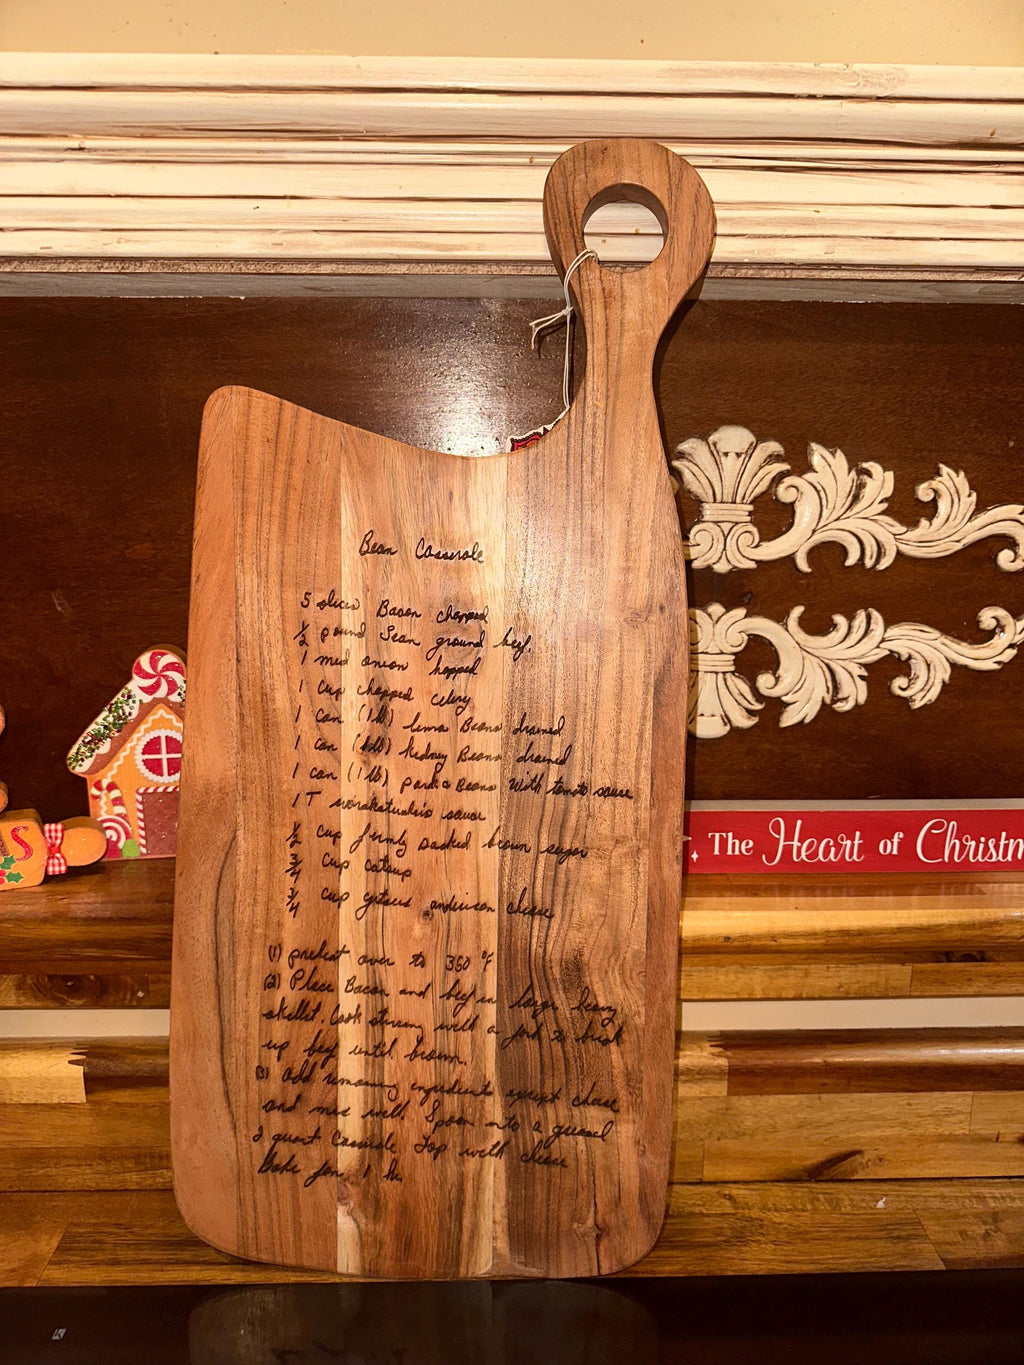 Bean Casserole
5 slices Bacon chopped
1/2 pound lean ground beef.
1 med onion hopped
1 cup chopped celery
1 can (1 lb) lema Beans drained
1 can (1 lb) kidney Beans drained
1 can (1 lb) pork & Beans with tomato sauce
1 T sauce
1/2 cup firmly packed brown sugar
3/4 cup catsup
3/4 cup american cheese
(1) preheat over to 350 °F
(2) Place Bacon and beef in large heavy
skillet. Cook stirring with a fork to break
up beef until brown.
(3) add remaining ingredients except cheese
and mix well. Spoon into a greased
2 quart Casserole Top with cheese
Bake for 1 hr
The Heart of Christm
S